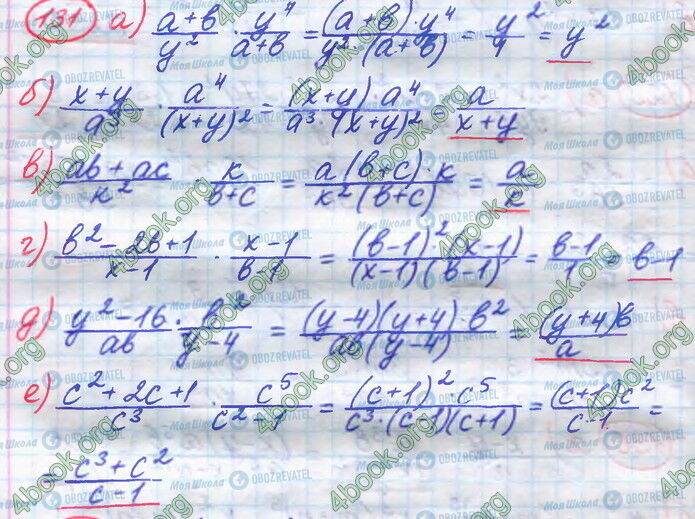 131 а) (a+b)/y² · y⁴/(a+b) = ((a+b)·y⁴)/(y²·(a+b)) = y²/1 = y²
б) (x+y)/a³ · a⁴/(x+y)² = ((x+y)·a⁴)/(a³·(x+y)²) = a/(x+y)
в) (ab+ac)/k² · k/(b+c) = (a(b+c)·k)/(k²(b+c)) = a/k
г) (b²-2b+1)/(x-1) · (x-1)/(b-1) = ((b-1)²(x-1))/((x-1)(b-1)) = (b-1)/1 = b-1
д) (y²-16)/ab · b²/(y-4) = ((y-4)(y+4)·b²)/(ab(y-4)) = ((y+4)b)/a
е) (c²+2c+1)/c³ · c⁵/(c²-1) = ((c+1)²·c⁵)/(c³·(c-1)(c+1)) = ((c+1)c²)/(c-1) =
= (c³+c²)/(c-1)